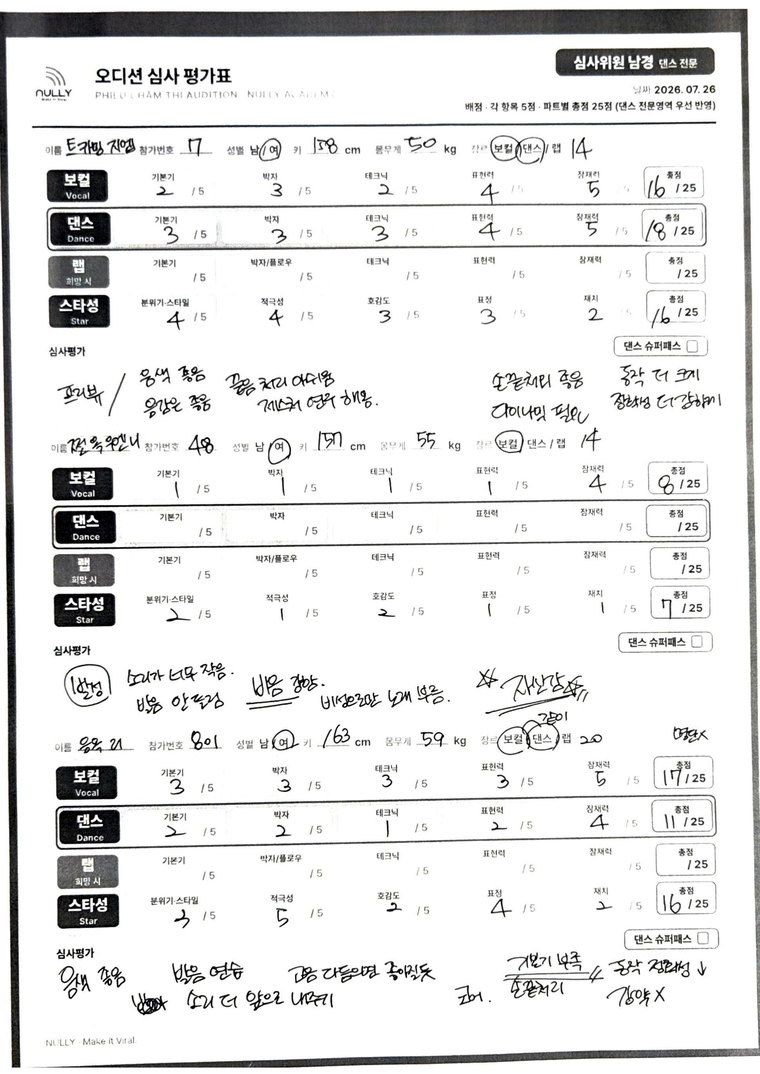 NULLY
Make it Viral
오디션 심사 평가표
PHIẾU CHẤM THI AUDITION · NULLY ACADEMY
심사위원 남경 댄스 전문
날짜 2026. 07. 26
배점 · 각 항목 5점 · 파트별 총점 25점 (댄스 전문영역 우선 반영)
이름 참가번호 7 성별 남/여 키 158 cm 몸무게 50 kg 장르 보컬/댄스/랩 14
보컬 Vocal 기본기 2 /5 박자 3 /5 테크닉 2 /5 표현력 4 /5 잠재력 5 /5 총점 16 /25
댄스 Dance 기본기 3 /5 박자 3 /5 테크닉 3 /5 표현력 4 /5 잠재력 5 /5 총점 18 /25
랩 희망 시 기본기 /5 박자/플로우 /5 테크닉 /5 표현력 /5 잠재력 /5 총점 /25
스타성 Star 분위기·스타일 4 /5 적극성 4 /5 호감도 3 /5 표정 3 /5 재치 2 /5 총점 16 /25
심사평가
댄스 슈퍼패스
프리뷰 / 음색 좋음 끝음 처리 아쉬움 손끝처리 좋음 동작 더 크게
음감은 좋음 제스처 연습 해용. 다이나믹 필요 정확성 더 강하게
이름 참가번호 48 성별 남/여 키 157 cm 몸무게 55 kg 장르 보컬/댄스/랩 14
보컬 Vocal 기본기 1 /5 박자 1 /5 테크닉 1 /5 표현력 1 /5 잠재력 4 /5 총점 8 /25
댄스 Dance 기본기 /5 박자 /5 테크닉 /5 표현력 /5 잠재력 /5 총점 /25
랩 희망 시 기본기 /5 박자/플로우 /5 테크닉 /5 표현력 /5 잠재력 /5 총점 /25
스타성 Star 분위기·스타일 2 /5 적극성 1 /5 호감도 2 /5 표정 1 /5 재치 1 /5 총점 7 /25
댄스 슈퍼패스
심사평가
발성 소리가 너무 작음. 자신감
발음 안들림 발음 비성으로만 노래 부름.
같이
이름 참가번호 801 성별 남/여 키 163 cm 몸무게 59 kg 장르 보컬/댄스/랩 20
보컬 Vocal 기본기 3 /5 박자 3 /5 테크닉 3 /5 표현력 3 /5 잠재력 5 /5 총점 17 /25
댄스 Dance 기본기 2 /5 박자 2 /5 테크닉 1 /5 표현력 2 /5 잠재력 4 /5 총점 11 /25
랩 희망 시 기본기 /5 박자/플로우 /5 테크닉 /5 표현력 /5 잠재력 /5 총점 /25
스타성 Star 분위기·스타일 3 /5 적극성 5 /5 호감도 2 /5 표정 4 /5 재치 2 /5 총점 16 /25
댄스 슈퍼패스
심사평가
음색 좋음 발음 연습 고음 다듬으면 좋아질듯 기본기 부족 동작 정확성 ↓
소리 더 앞으로 내주기 손끝처리 강약 X
NULLY · Make it Viral.